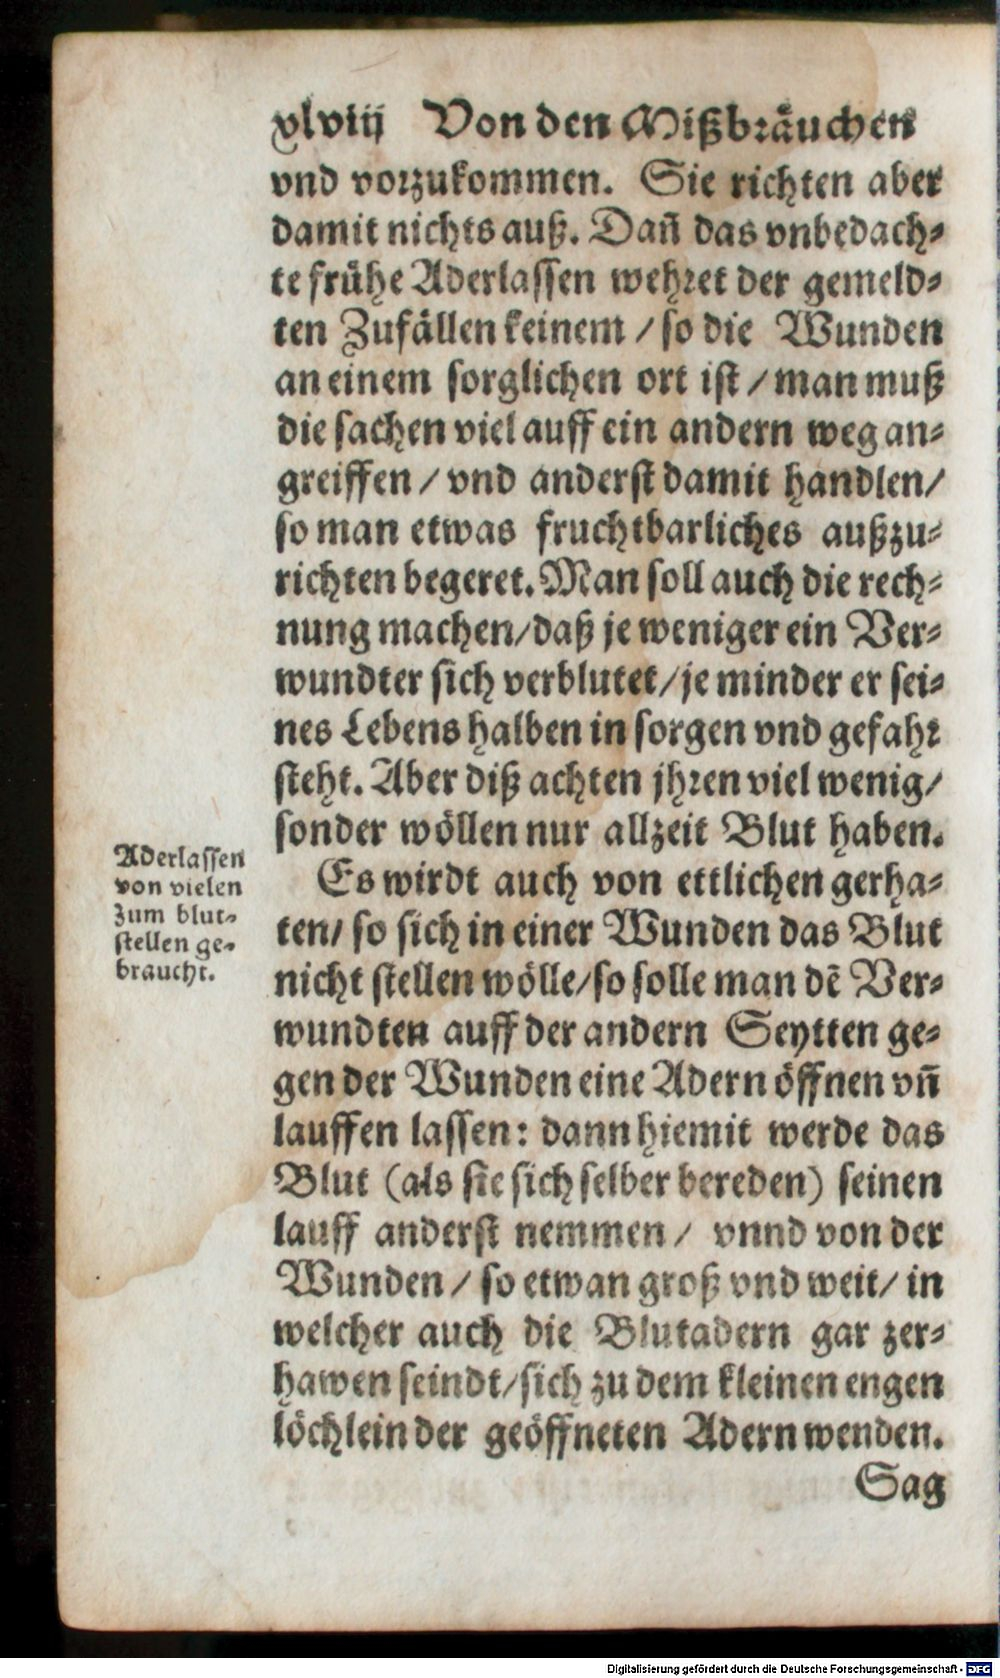 xlviij Von den Mißbräuchen
vnd vorzukommen. Sie richten aber
damit nichts auß. Dañ das vnbedach⸗
te frühe Aderlassen wehret der gemeld⸗
ten Zufällen keinem / so die Wunden
an einem sorglichen ort ist / man muß
die sachen viel auff ein andern weg an⸗
greiffen / vnd anderst damit handlen/
so man etwas fruchtbarliches außzu⸗
richten begeret. Man soll auch die rech⸗
nung machen/daß je weniger ein Ver⸗
wundter sich verblutet/je minder er sei⸗
nes Lebens halben in sorgen vnd gefahr
steht. Aber diß achten jhren viel wenig/
sonder wöllen nur allzeit Blut haben.
Aderlassen
von vielen
zum blut⸗
stellen ge⸗
braucht.
Es wirdt auch von ettlichen gerha⸗
ten/ so sich in einer Wunden das Blut
nicht stellen wölle/so solle man dē Ver⸗
wundten auff der andern Seytten ge⸗
gen der Wunden eine Adern öffnen vñ
lauffen lassen: dann hiemit werde das
Blut (als sie sich selber bereden) seinen
lauff anderst nemmen / vnnd von der
Wunden / so etwan groß vnd weit/ in
welcher auch die Blutadern gar zer⸗
hawen seindt/sich zu dem kleinen engen
löchlein der geöffneten Adern wenden.
Sag
Digitalisierung gefördert durch die Deutsche Forschungsgemeinschaft - DFG